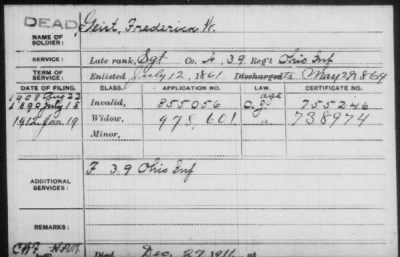 DEAD
NAME OF SOLDIER: Geist, Frederick W.
SERVICE: Late rank, Sgt Co. A, 39 Reg't Ohio Inf
TERM OF SERVICE: Enlisted July 12, 1861 Discharged May 29 1864
DATE OF FILING. CLASS. APPLICATION NO. LAW. CERTIFICATE NO.
1908 Aug 22 age
1890 July 18 Invalid, 855056 755246
1912 Jan 19 Widow, 978,601 " 738974
Minor,
ADDITIONAL SERVICES: F 39 Ohio Inf
REMARKS:
Died Dec. 27 1911, at